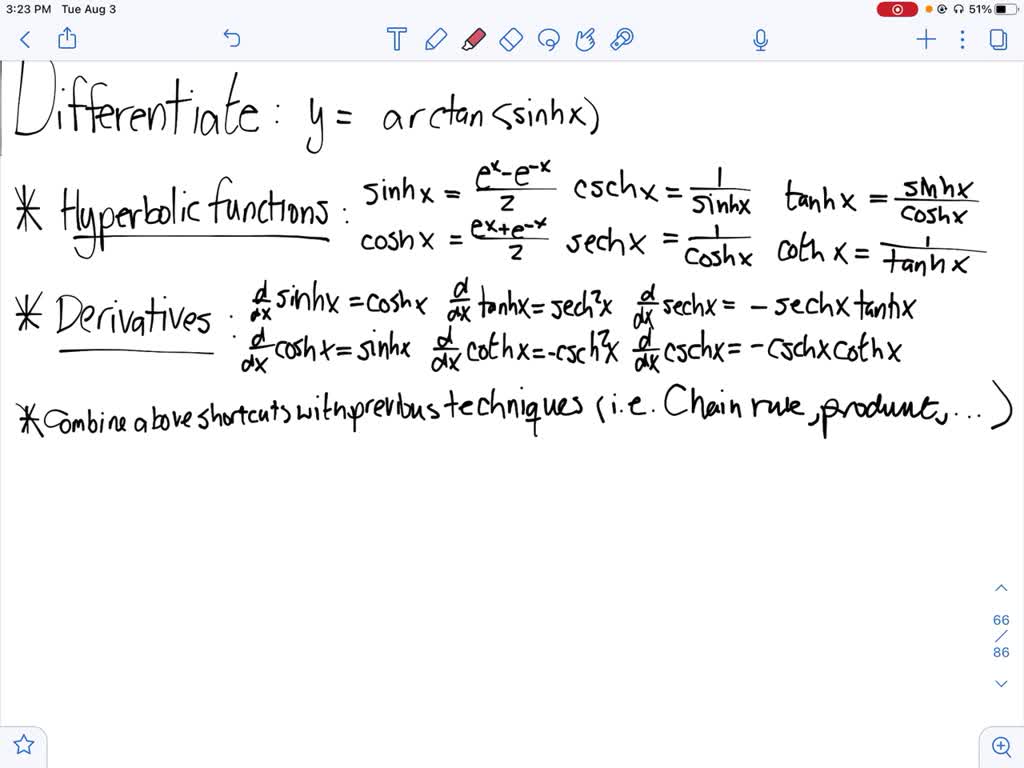 3:23 PM Tue Aug 3 51%
Differentiate: y = arctan(sinhx)
* Hyperbolic functions: sinhx = (e^x - e^-x)/2 cschx = 1/sinhx tanhx = sinhx/coshx
coshx = (e^x + e^-x)/2 sechx = 1/coshx cothx = 1/tanhx
* Derivatives: d/dx sinhx = coshx d/dx tanhx = sech²x d/dx sechx = - sechx tanhx
d/dx coshx = sinhx d/dx cothx = -csch²x d/dx cschx = - cschx cothx
* Combine above shortcuts with previous techniques (i.e. Chain rule, product, ...)
66
/
86